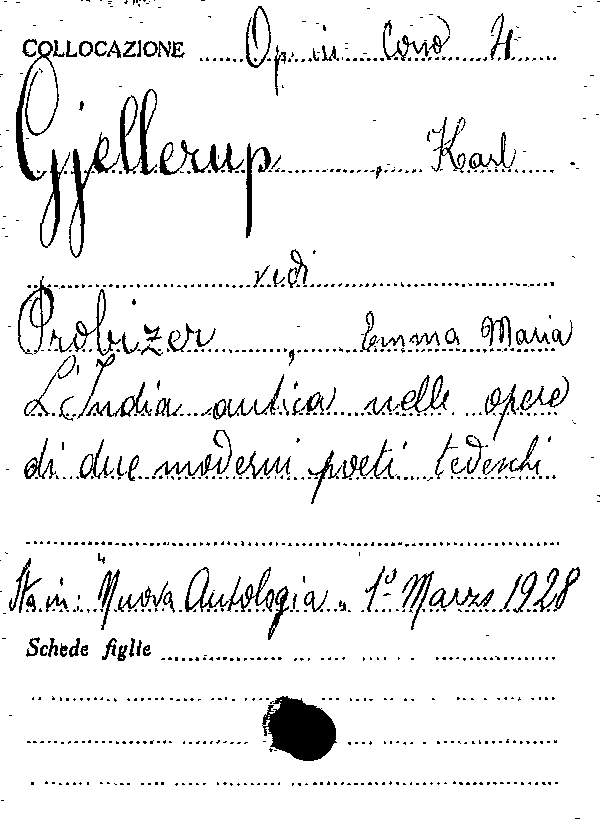 COLLOCAZIONE Op. in Corso 4
Gjellerup, Karl
vedi
Probizer, Emma Maria
L'India antica nelle opere
di due moderni poeti tedeschi
Sta in: "Nuova Antologia" 1º Marzo 1928
Schede figlie